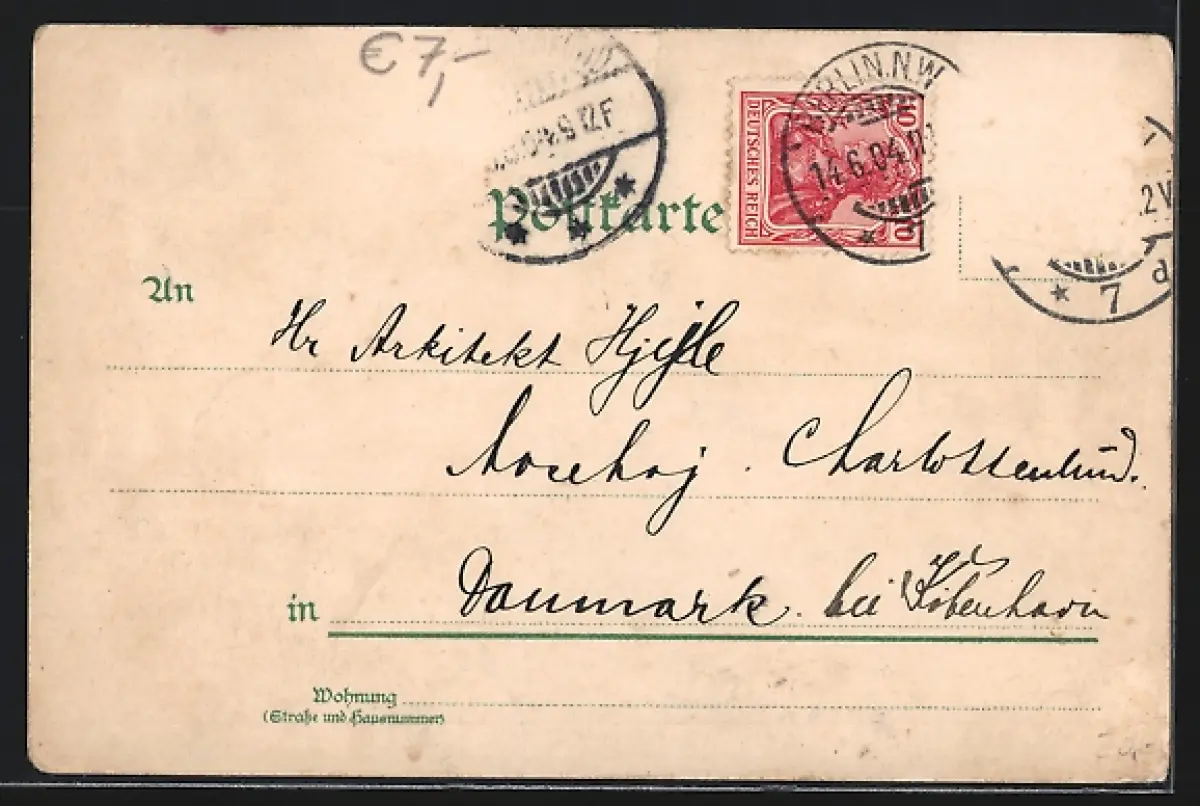 €7,-
12F
Postkarte
DEUTSCHES REICH
10
10
BERLIN.N.W.
14.6.04.11
2V
7
d
An
Hr Arkitekt
Mosehøj. Charlottenlund.
in Danmark. bei København
Wohnung
(Straße und Hausnummer)